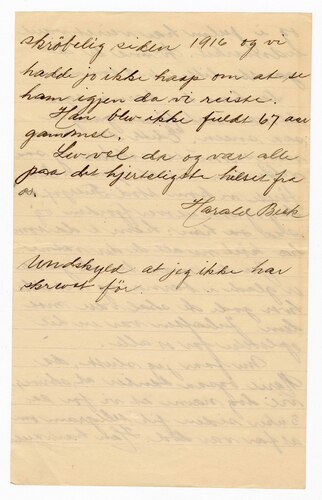 skröbelig siden 1916 og vi
hadde jo ikke haap om at se
ham igjen da vi reiste.
Han blev ikke fuldt 67 aar
gammel.
Lev vel da og vær alle
paa det hjerteligste hilset fra
os.
Harald Beck
Undskyld at jeg ikke har
skrevet för.